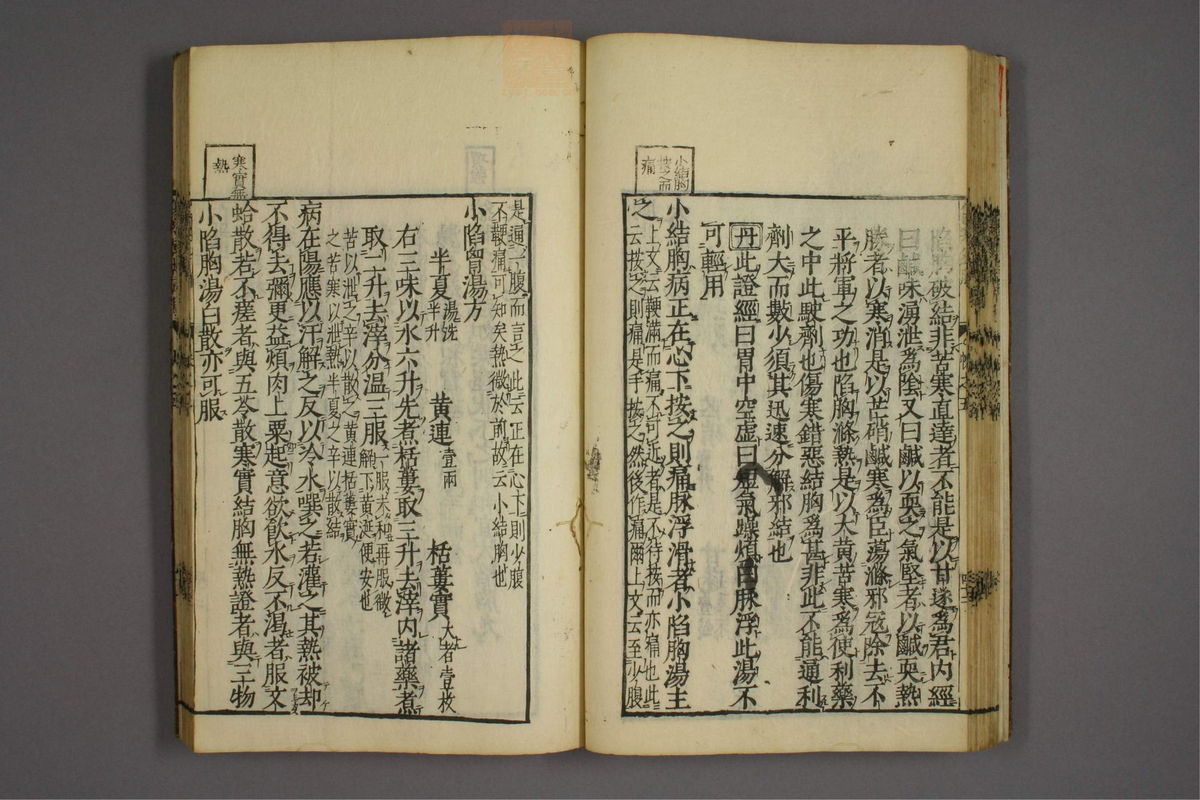 陷胸破結非苦寒直達者不能是以甘遂爲君内經
曰鹹味湧泄爲陰又曰鹹以耎之氣堅者以鹹耎熱
勝者以寒消是以芒硝鹹寒爲臣湯滌邪冦除去不
平將軍之功也陷胸滌熱是以大黄苦寒爲使利藥
之中此駛劑也傷寒錯惡結胸爲甚非此不能通利
劑大而數少須其迅速分解邪結也
丹此證經曰胃中空虚曰短氣躁煩曰脉浮此湯不
可輕用
小結胸按之而痛
小結胸病正在心下按之則痛脉浮滑者小陷胸湯主
之
上文云鞕滿而痛不可近者是不待按而亦痛也此
云按之則痛是手按之然後作痛爾上文云至少腹
是通一腹而言之此云正在心下則少腹
不鞕痛可知矣熱微於前故云小結胸也
小陷胷湯方
半夏湯洗半升 黄連壹兩 栝蔞實大者壹枚
右三味以水六升先煮栝蔞取三升去滓内諸藥煮
取二升去滓分温三服
一服未和再服微
解下黄涎便安也
苦以泄之辛以散之黄連栝蔞實
之苦寒以泄熱半夏之辛以散結
寒實無熱
病在陽應以汗解之反以冷水噀之若灌之其熱被却
不得去彌更益煩肉上粟起意欲飲水反不渴者服文
蛤散若不瘥者與五苓散寒實結胸無熱證者與三物
小陷胸湯白散亦可服